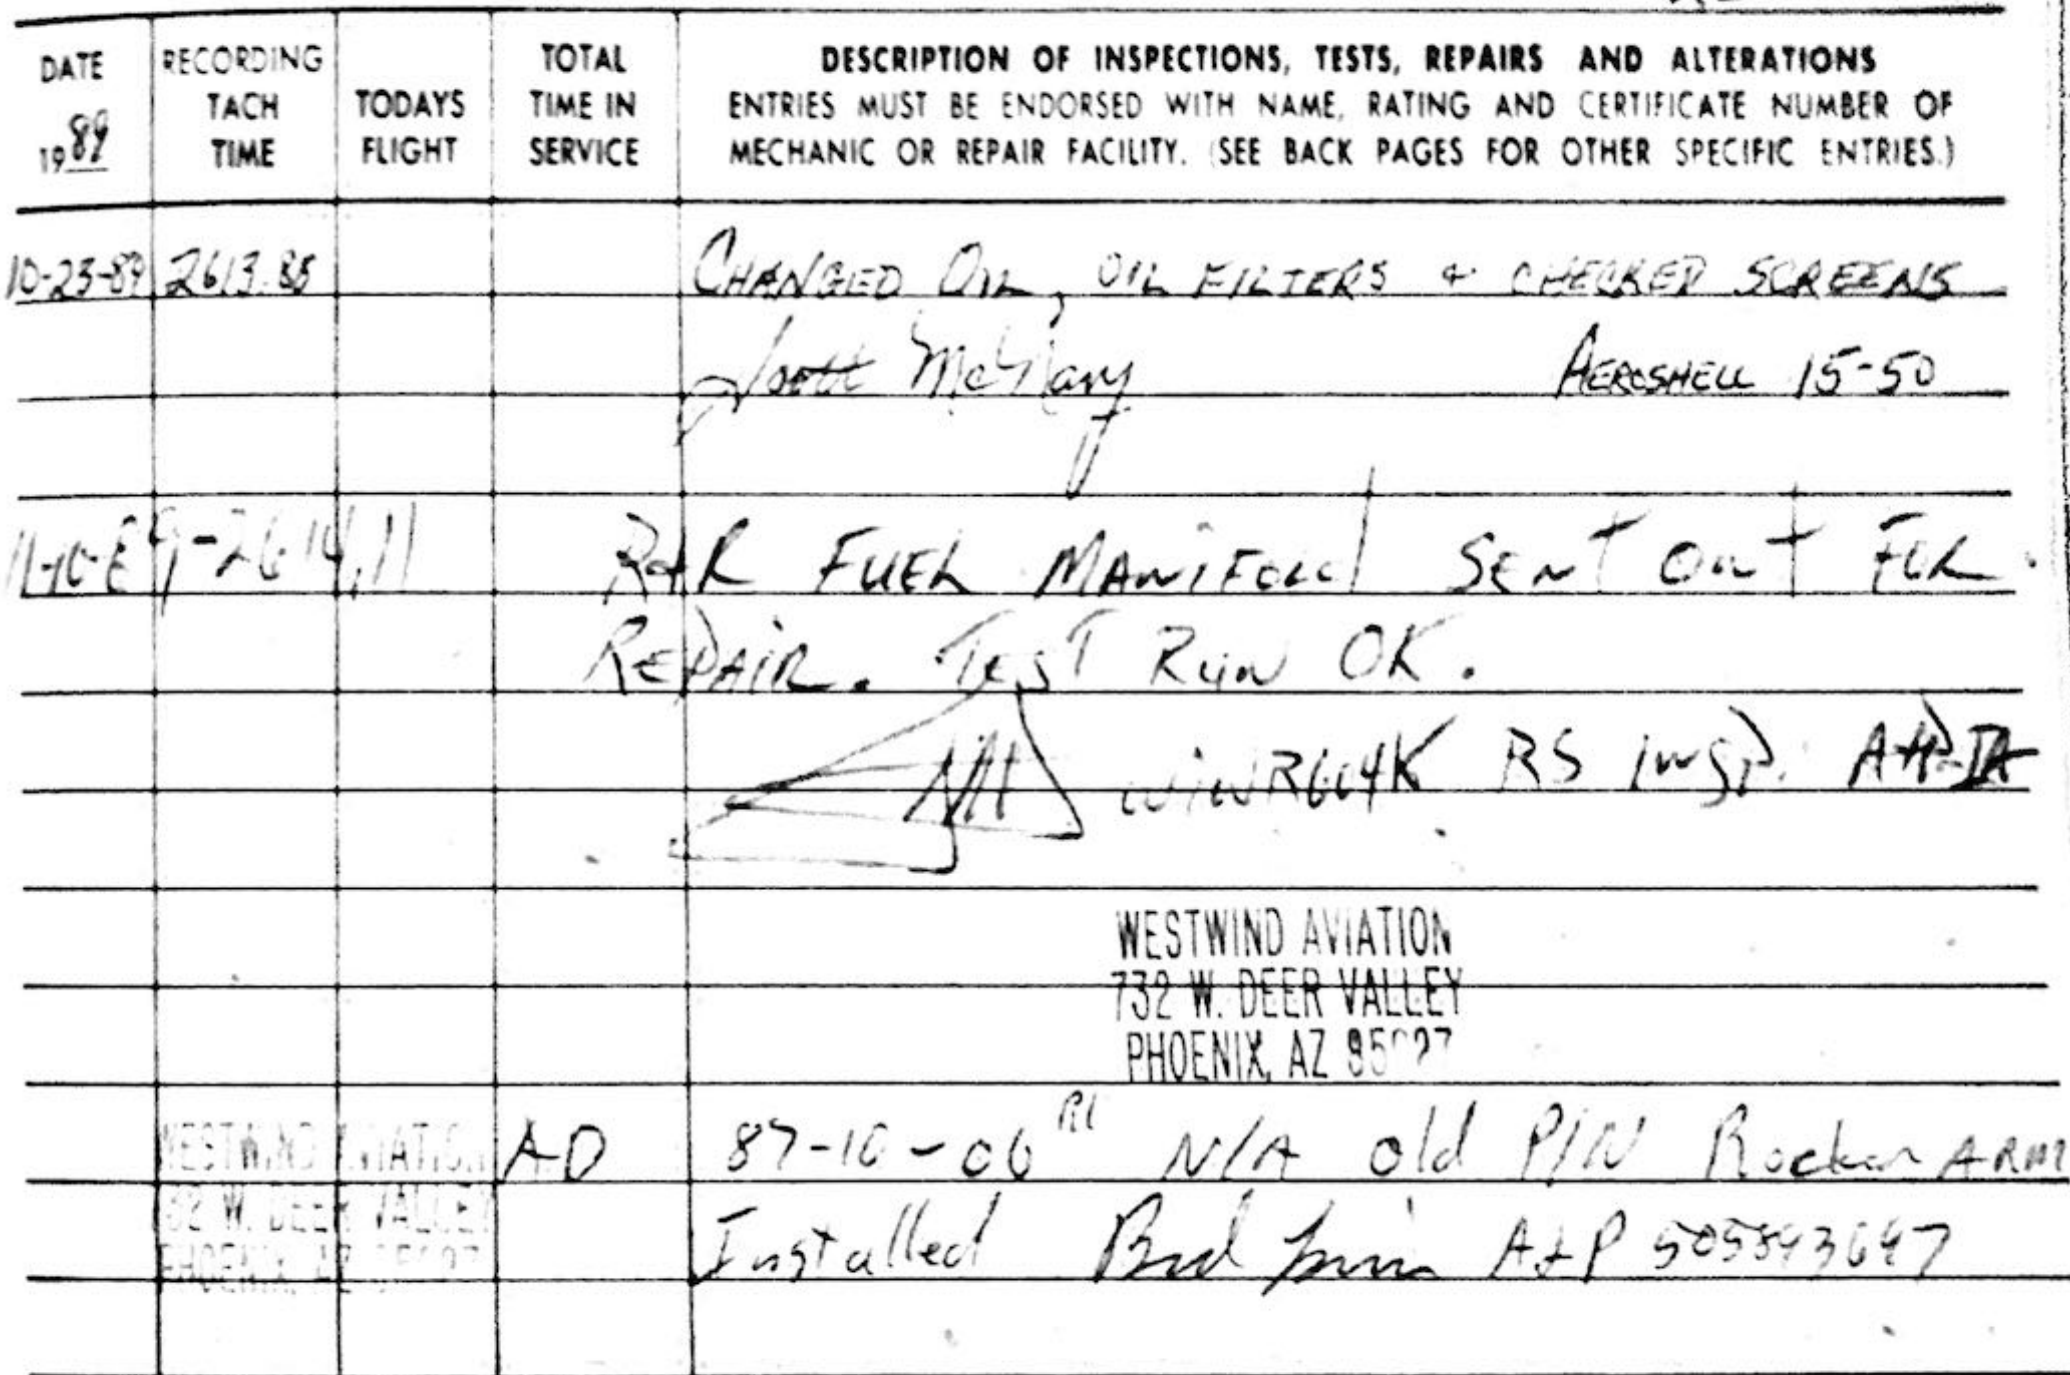 DATE
1989
RECORDING
TACH
TIME
TODAYS
FLIGHT
TOTAL
TIME IN
SERVICE
DESCRIPTION OF INSPECTIONS, TESTS, REPAIRS AND ALTERATIONS
ENTRIES MUST BE ENDORSED WITH NAME, RATING AND CERTIFICATE NUMBER OF
MECHANIC OR REPAIR FACILITY. (SEE BACK PAGES FOR OTHER SPECIFIC ENTRIES.)
10-23-89 CHANGED OIL, OIL FILTERS & CHECKED SCREENS
Scott AEROSHELL 15-50
2614.11 R&R FUEL MANIFOLD SENT OUT FOR
REPAIR. TEST RUN OK.
RS INSP. A+P-IA
WESTWIND AVIATION
732 W. DEER VALLEY
PHOENIX, AZ
WESTWIND AVIATION
732 W. DEER VALLEY
PHOENIX, AZ
AD 87-10-06 R1 N/A old P/N Rocker ARM
Installed Bud A&P 505893697